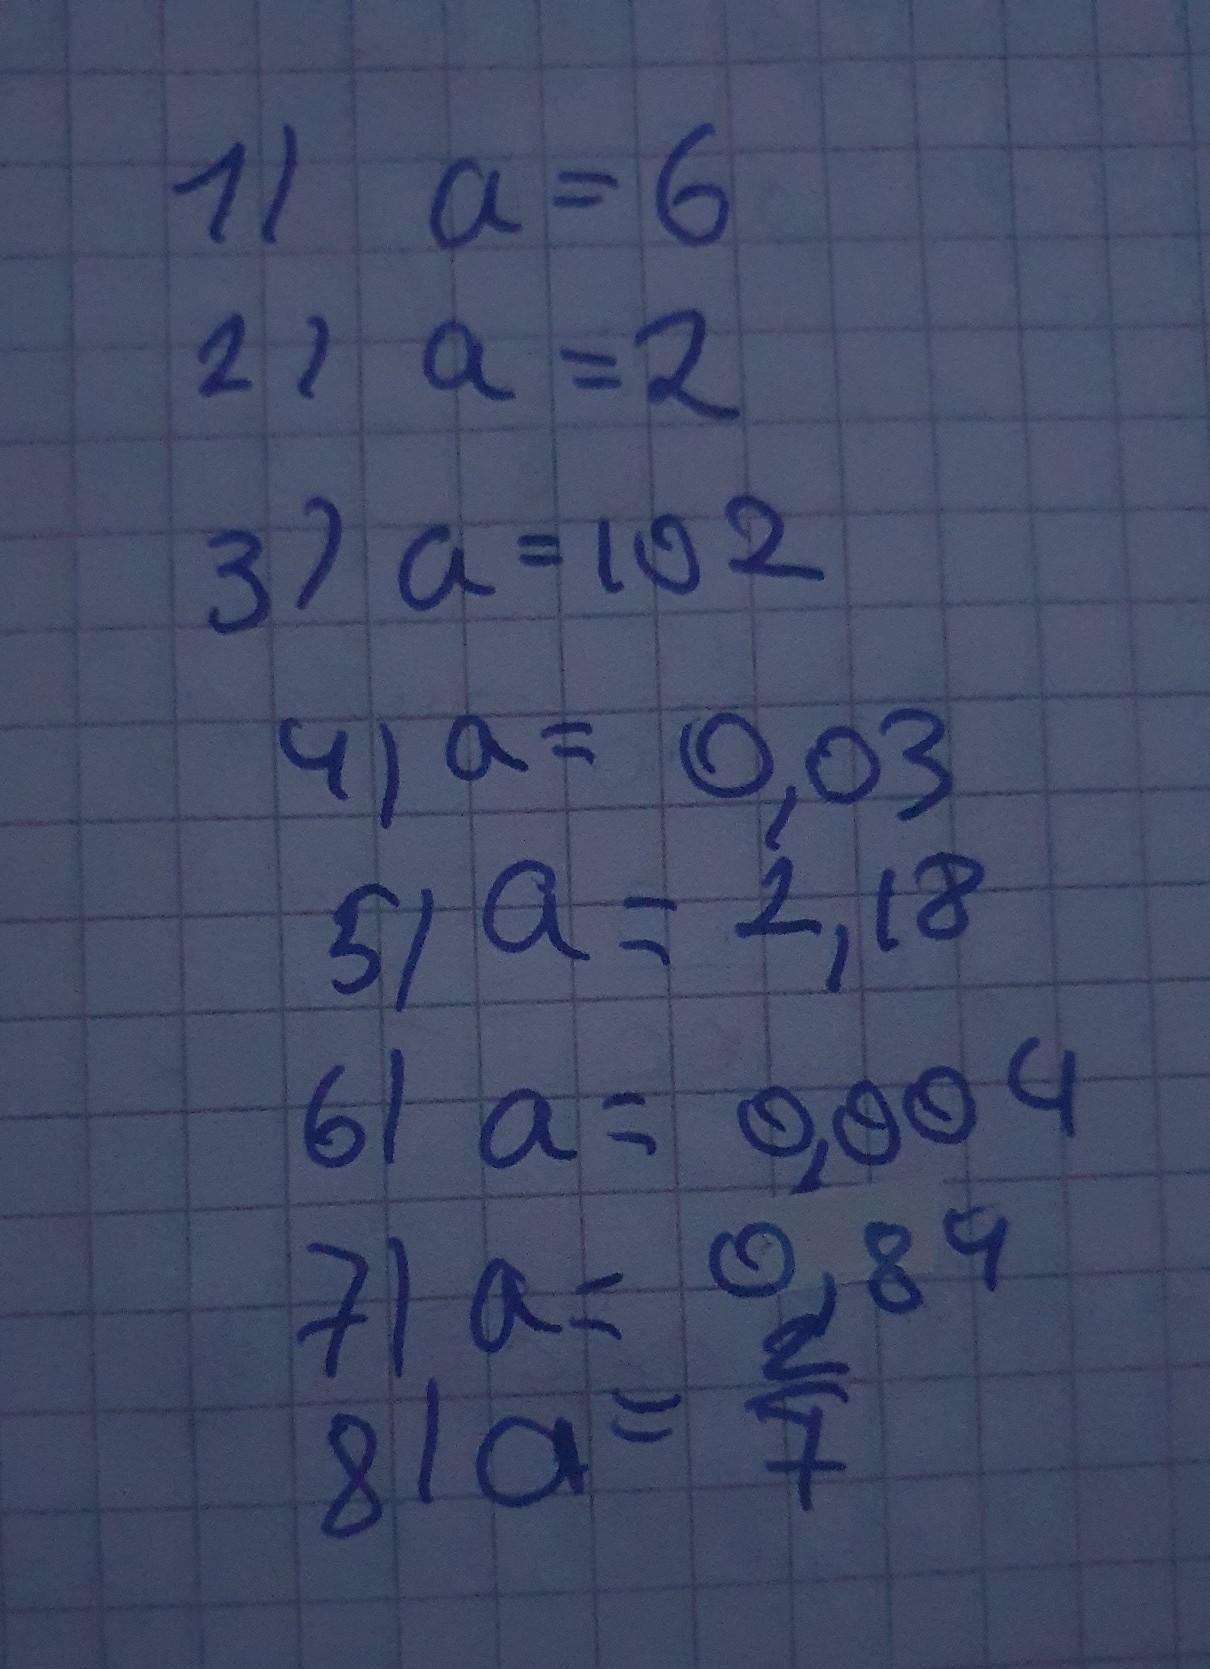 1) a = 6
2) a = 2
3) a = 102
4) a = 0,03
5) a = 2,18
6) a = 0,004
7) a = 0,84
8) a = 2/7